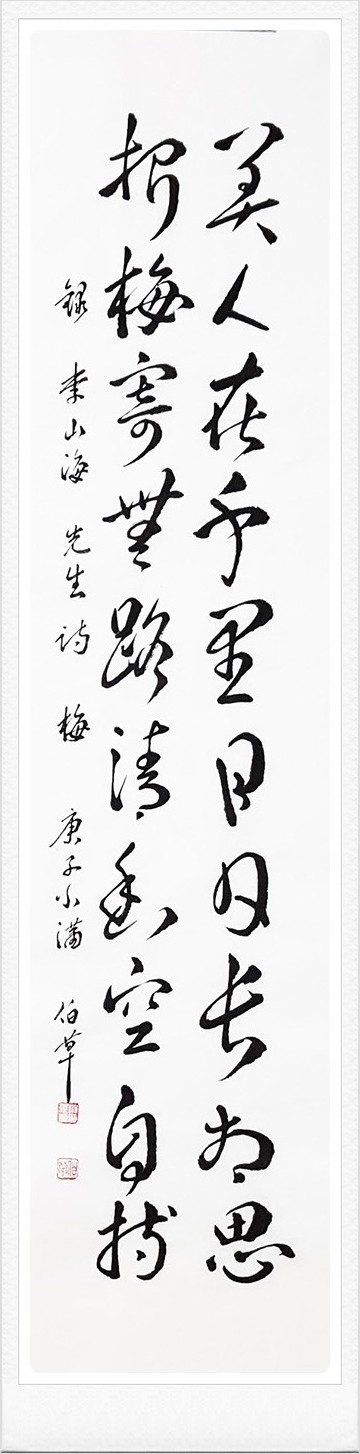 美人在千里日夕长相思
折梅寄無路清香空自持
録 李山海 先生 诗 梅 庚子小满 伯草